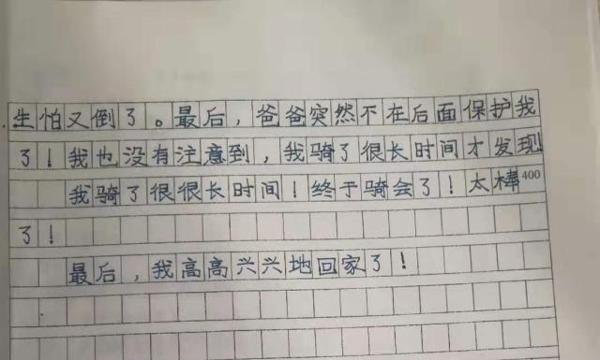 生怕又倒了。最后，爸爸突然不在后面保护我
了！我也没有注意到，我骑了很长时间才发现！
我骑了很很长时间！终于骑会了！太棒400
了！
最后，我高高兴兴地回家了！